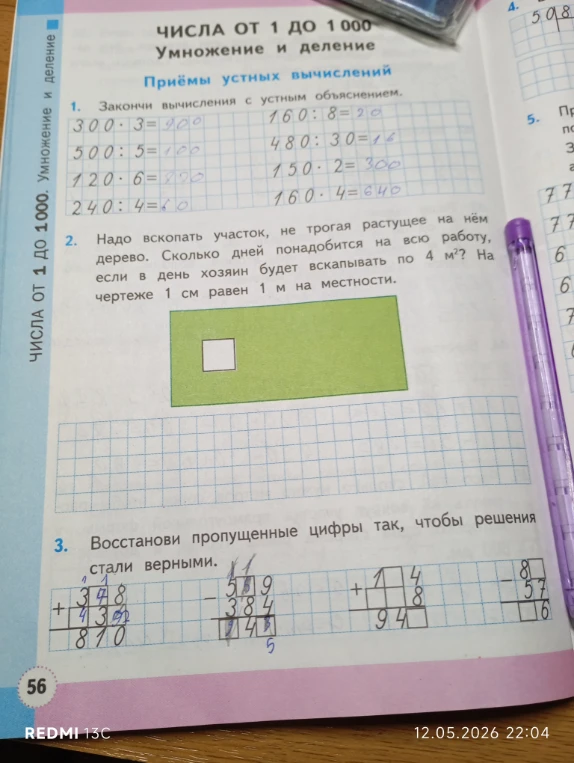 ЧИСЛА ОТ 1 ДО 1000
Умножение и деление
Приёмы устных вычислений
1. Закончи вычисления с устным объяснением.
300 · 3 = 900
160 : 8 = 20
500 : 5 = 100
480 : 30 = 16
120 · 6 =
150 · 2 = 300
240 : 4 = 60
160 · 4 = 640
2. Надо вскопать участок, не трогая растущее на нём
дерево. Сколько дней понадобится на всю работу,
если в день хозяин будет вскапывать по 4 м²? На
чертеже 1 см равен 1 м на местности.
3. Восстанови пропущенные цифры так, чтобы решения
стали верными.
1 1
348 5 9 1 4 8
+ 43 - 384 + 8 - 57
810 4 94 6
5
56
ЧИСЛА ОТ 1 ДО 1000. Умножение и деление
4.
508
5.
77
77
6
6
7
REDMI 13C
12.05.2026 22:04